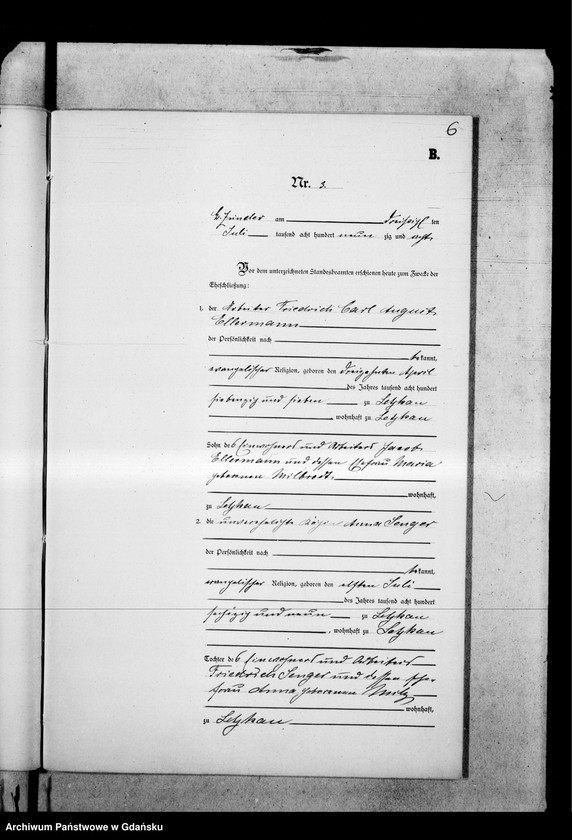 6
B.
Nr. 3.
Gr. Zünder am Dreißigsten
Juli tausend acht hundert neunzig und sechs
Vor dem unterzeichneten Standesbeamten erschienen heute zum Zwecke der
Eheschließung:
1. der Arbeiter Friedrich Carl August
Ellermann
der Persönlichkeit nach
bekannt,
evangelischer Religion, geboren den dreizehnten April
des Jahres tausend acht hundert
siebenzig und sieben zu Letzkau
wohnhaft zu Letzkau
Sohn des Einwohners und Arbeiters Jacob
Ellermann und dessen Ehefrau Maria
geborenen Milbrodt,
wohnhaft,
zu Letzkau
2. die unverehelichte Anna Senger
der Persönlichkeit nach
bekannt,
evangelischer Religion, geboren den elften Juli
des Jahres tausend acht hundert
sechszig und neun zu Letzkau
, wohnhaft zu Letzkau
Tochter des Einwohners und Arbeiters
Friedrich Senger und dessen Ehe-
frau Anna geborenen
wohnhaft,
zu Letzkau
Archiwum Państwowe w Gdańsku